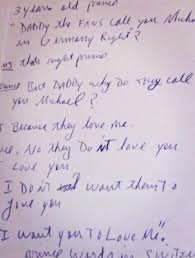 3 years old prince
"DADDY the FANS call you Micha
in Germany Right?
thats right prince
But DADDY why Do they call
you Michael?
Because they love me.
No they DoNt love you
Love you
I DoNt want them to
love you
I want you to Love me"
prince words in switze